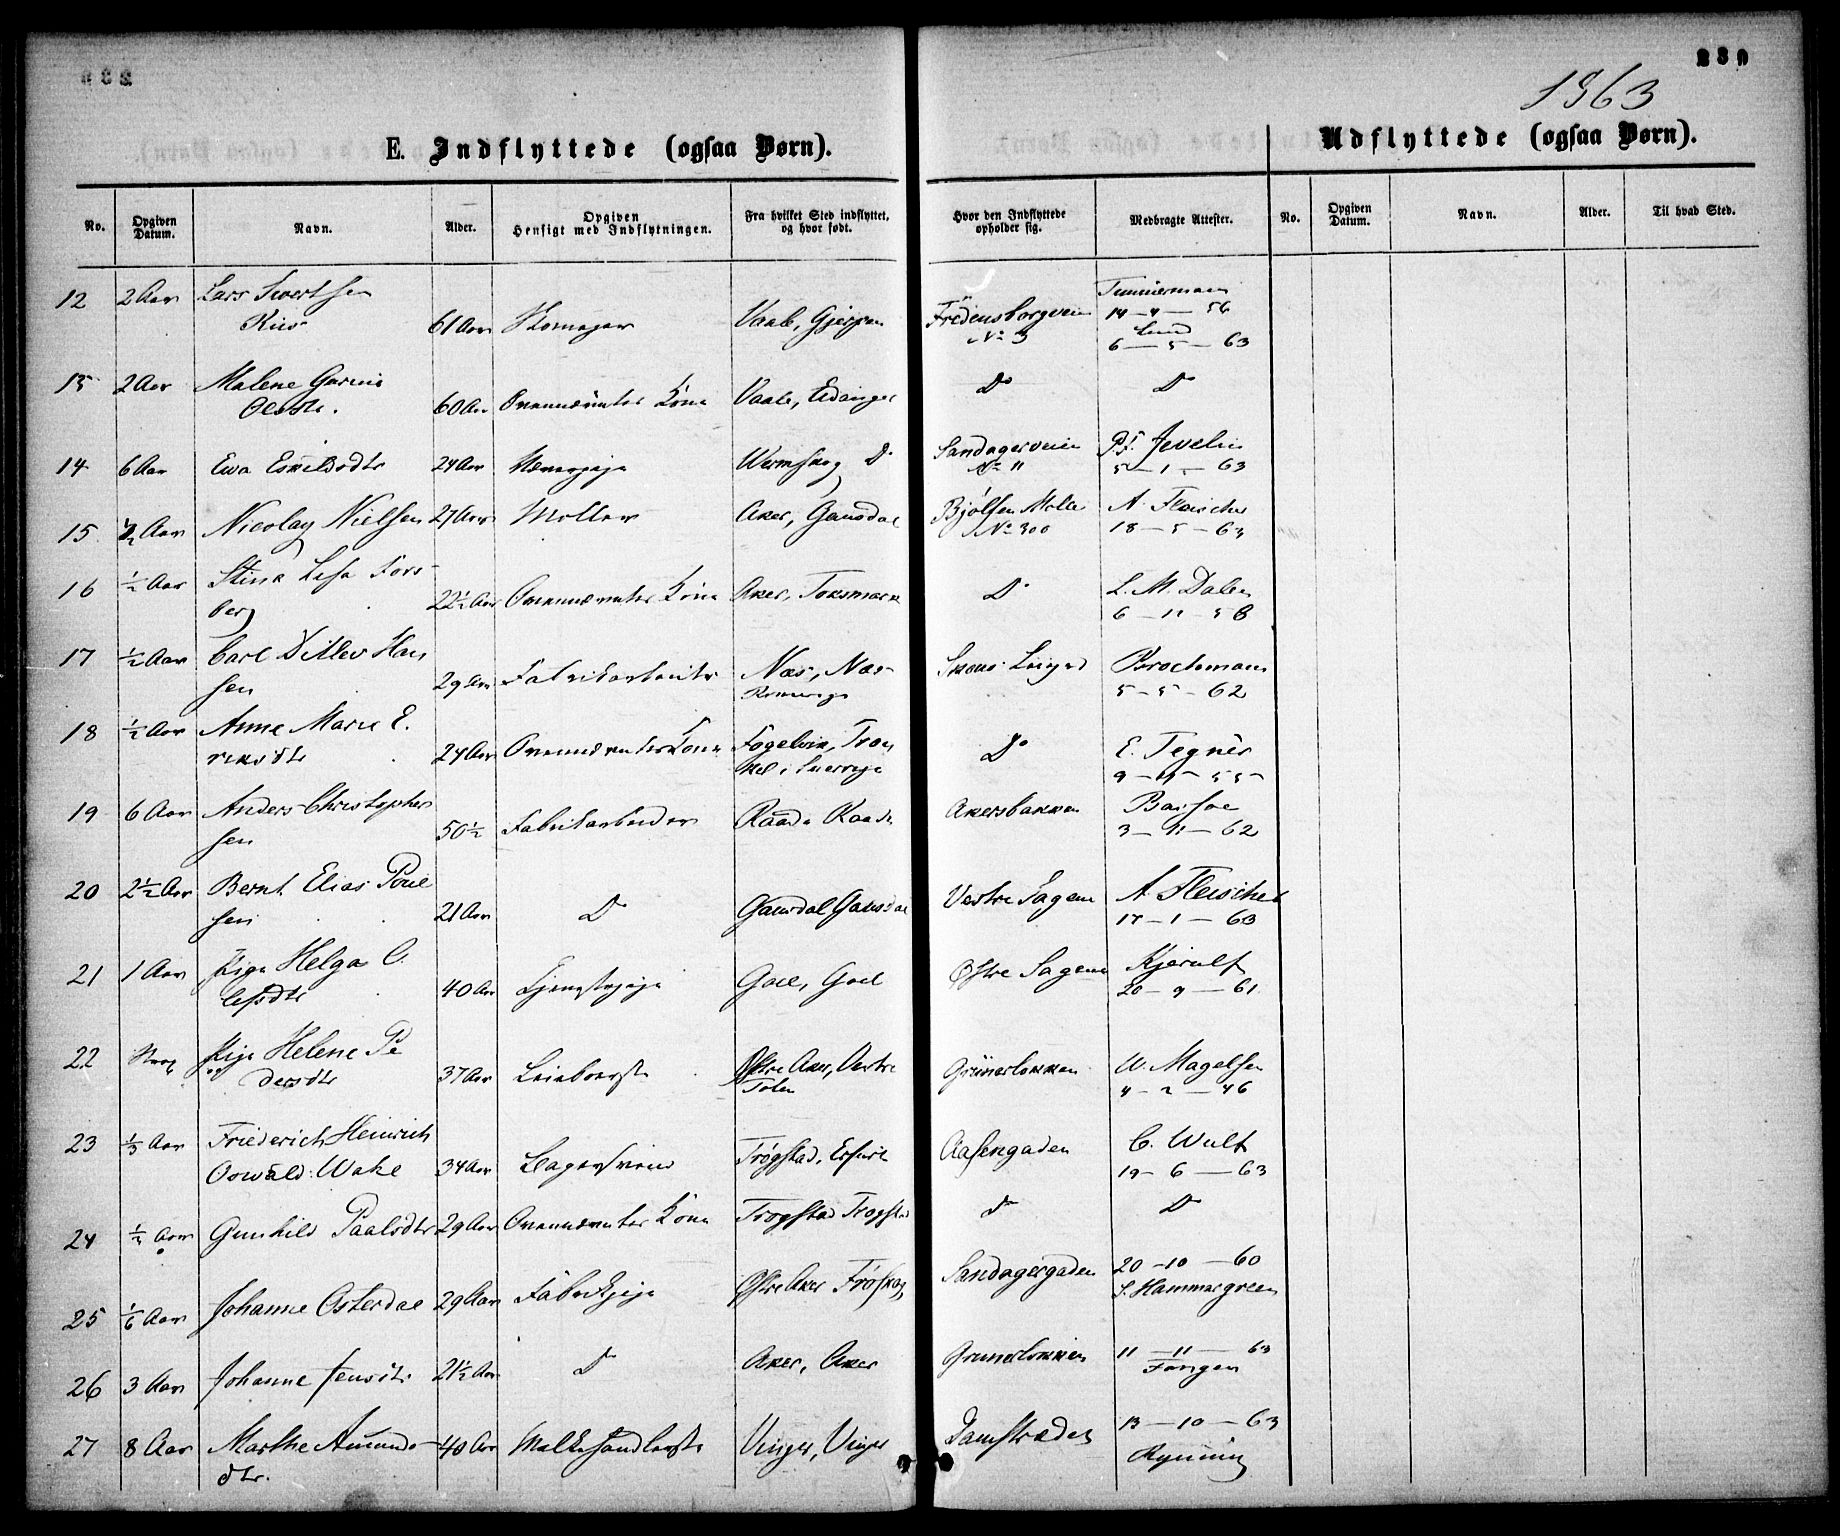 230
1863
E. Indflyttede (ogsaa Børn).
Udflyttede (ogsaa Børn).
No. Opgiven Datum. Navn. Alder. Opgiven Hensigt med Indflytningen. Fra hvilket Sted indflyttet, og hvor født. Hvor den Indflyttede opholder sig. Medbragte Attester. No. Opgiven Datum. Navn. Alder. Til hvad Sted.
12 2 Aar Lars Sivertsen 61 Aar Skomager Vaale, Gjerpen Fredensborgveien No 3
14 - 4 - 56
Lund
6 - 5 - 63
13 2 Aar Malene 60 Aar Ovennævntes Kone Vaale, Eidanger Do Do
14 6 Aar Ewa Eskildsdtr 24 Aar Wermskog Do Sandagerveien No 11 Jevelin
5 - 1 - 63
15 1/2 Aar Nicolay Nielsen 27 Aar Møller Aker, Gausdal Bjølsen Mølle No 300 A. Fleischer
18 - 5 - 63
16 1/2 Aar Stina Lisa Forsberg 22 1/2 Aar Ovennævntes Kone Aker, Toksmark Do L. M. Dalen
6 - 11 - 58
17 1/2 Aar Carl Ditlev Hansen 29 Aar Fabrikarbeider Næs, Næs Romerige Brochmann
5 - 5 - 62
18 1/2 Aar Anne Marie Eriksdtr 24 Aar Ovennævntes Kone Fogelvik, i Sverrige Do E. Tegnér
19 6 Aar Anders Christophersen 50 1/2 Fabrikarbeider Raade Raade Akersbakken
3 - 11 - 62
20 2 1/2 Aar Bernt Elias Poulsen 21 Aar Do Gausdal Gausdal Vestre Sagene A. Fleischer
17 - 1 - 63
21 1 Aar Pige Helga Olesdtr 40 Aar Tjenestepige Goel, Goel Østre Sagene Kjerulf
20 - 9 - 61
22 Pige Helene Pedersdtr 37 Aar Østre Aker, Vestre Toten Grünerløkken W. Magelsen
4 - 2 - 46
23 1/3 Aar Friederich Heinrich Oswald Wake 34 Aar Trøgstad, Erfurt Aasengaden C. Wulf
19 - 6 - 63
24 1/3 Aar Gunhild Paalsdtr 29 Aar Ovennævntes Kone Trøgstad Trøgstad Do Do
25 1/6 Aar Johanne Osterdal 29 Aar Fabrikpige Østre Aker Frøskog Sandagergaden 20 - 10 - 60
S. Hammargreen
26 3 Aar Johanne Jensdtr 21 1/2 Aar Do Aker, Aker Grunerløkken 11 - 11 - 63
27 8 Aar Marthe Amundsdtr. 40 Aar Melkehandlerske Vinger, Vinger Damstrædet 13 - 10 - 63